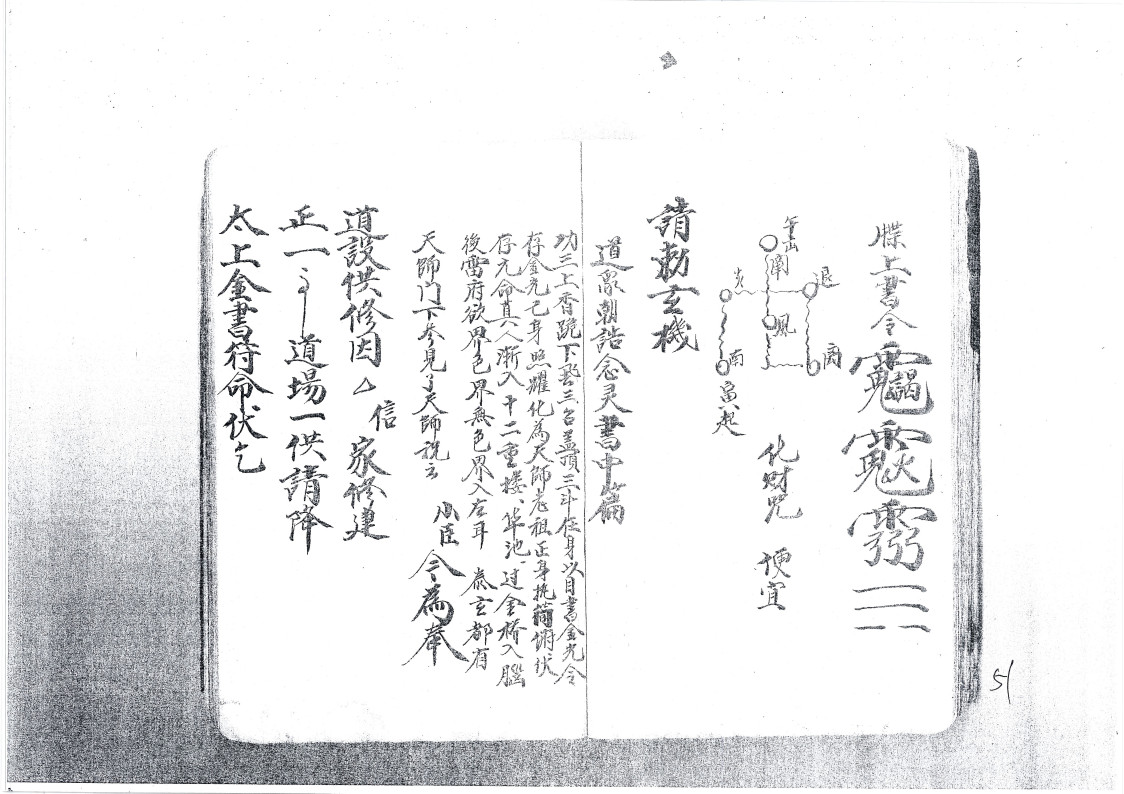 牒上書令
化財咒 便宜
請勅玄機
道眾朝誥念灵書中篇
功三上香跪下發三台蓋頭三斗住身以目書金光令
存金光己身照耀化為天師老祖正身執簡俯伏
存元命真人漸入十二重樓華池過金橋入腦
後雷府欲界色界無色界入左耳 泰玄都省
天師門下參見了天師祝云 小臣 今為奉
道設供修因厶 信 家修建
正一 道場一供請降
太上金書符命伏乞
51